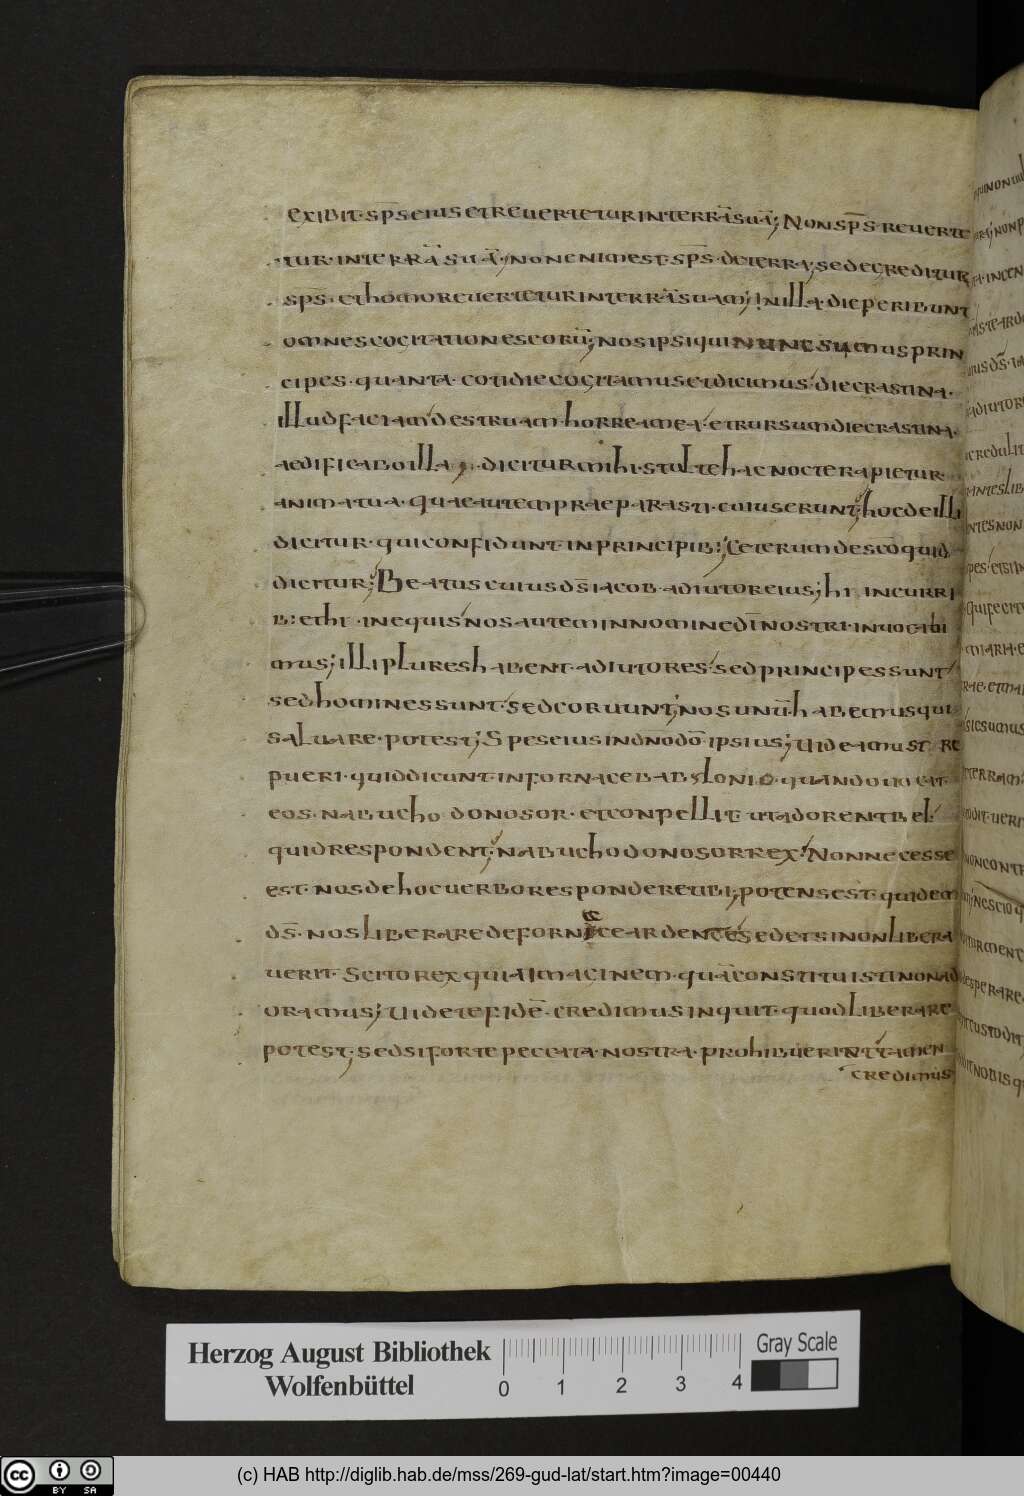 exibit· sp̅s eius et reuertetur in terrā suā; Non sp̅s· reuerte
tur· in terrā suā; non enim est· sp̅s· de terra; sed egreditur
sp̅s· et homo reuertetur in terrā suam; In illa· die peribunt
omnes cogitationes eorū; nos ipsi qui nunc sumus prin
cipes· quanta· cotidie cogitamus et dicimus· die crastina·
illud faciam· destruam· horrea mea· et rursum die crastina·
aedificabo illa; dicitur mihi· stulte hac nocte rapietur·
anima tua· quae autem praeparasti· cuius erunt; hoc de illi
dicitur· qui confidunt· in principib:; Ceterum de sco quid
dicitur; Beatus cuius ds̅ iacob· adiutor eius; hi in curri
b: et hi· in equis· nos autem in nomine di̅ nostri· inuocabi
mus; illi plures habent· adiutores· sed principes sunt·
sed homines sunt· sed coruunt; nos unū· habemus qui
saluare· potest; Spes eius in dn̅o do̅ ipsius; Uideamus t re
pueri· quid dicunt· in fornace babylonio· quando uocat·
eos· nabuchodonosor· et conpellit· ut adorent bel·
quid respondent· nabuchodonosor rex· Nonne cesse
est· nos de hoc uerbo respondere tibi; potens est· quidem
ds̅· nos liberare de fornace ardente· sed et si non libera
uerit· Scito rex quia imaginem· quā constituisti non ad
oramus; Uidete fidē· credimus inquit· quod liberare
potest; sed si forte peccata· nostra· prohibuerint· tamen
credimus

Herzog August Bibliothek
Wolfenbüttel
0 1 2 3 4
Gray Scale
BY SA
(c) HAB http://diglib.hab.de/mss/269-gud-lat/start.htm?image=00440